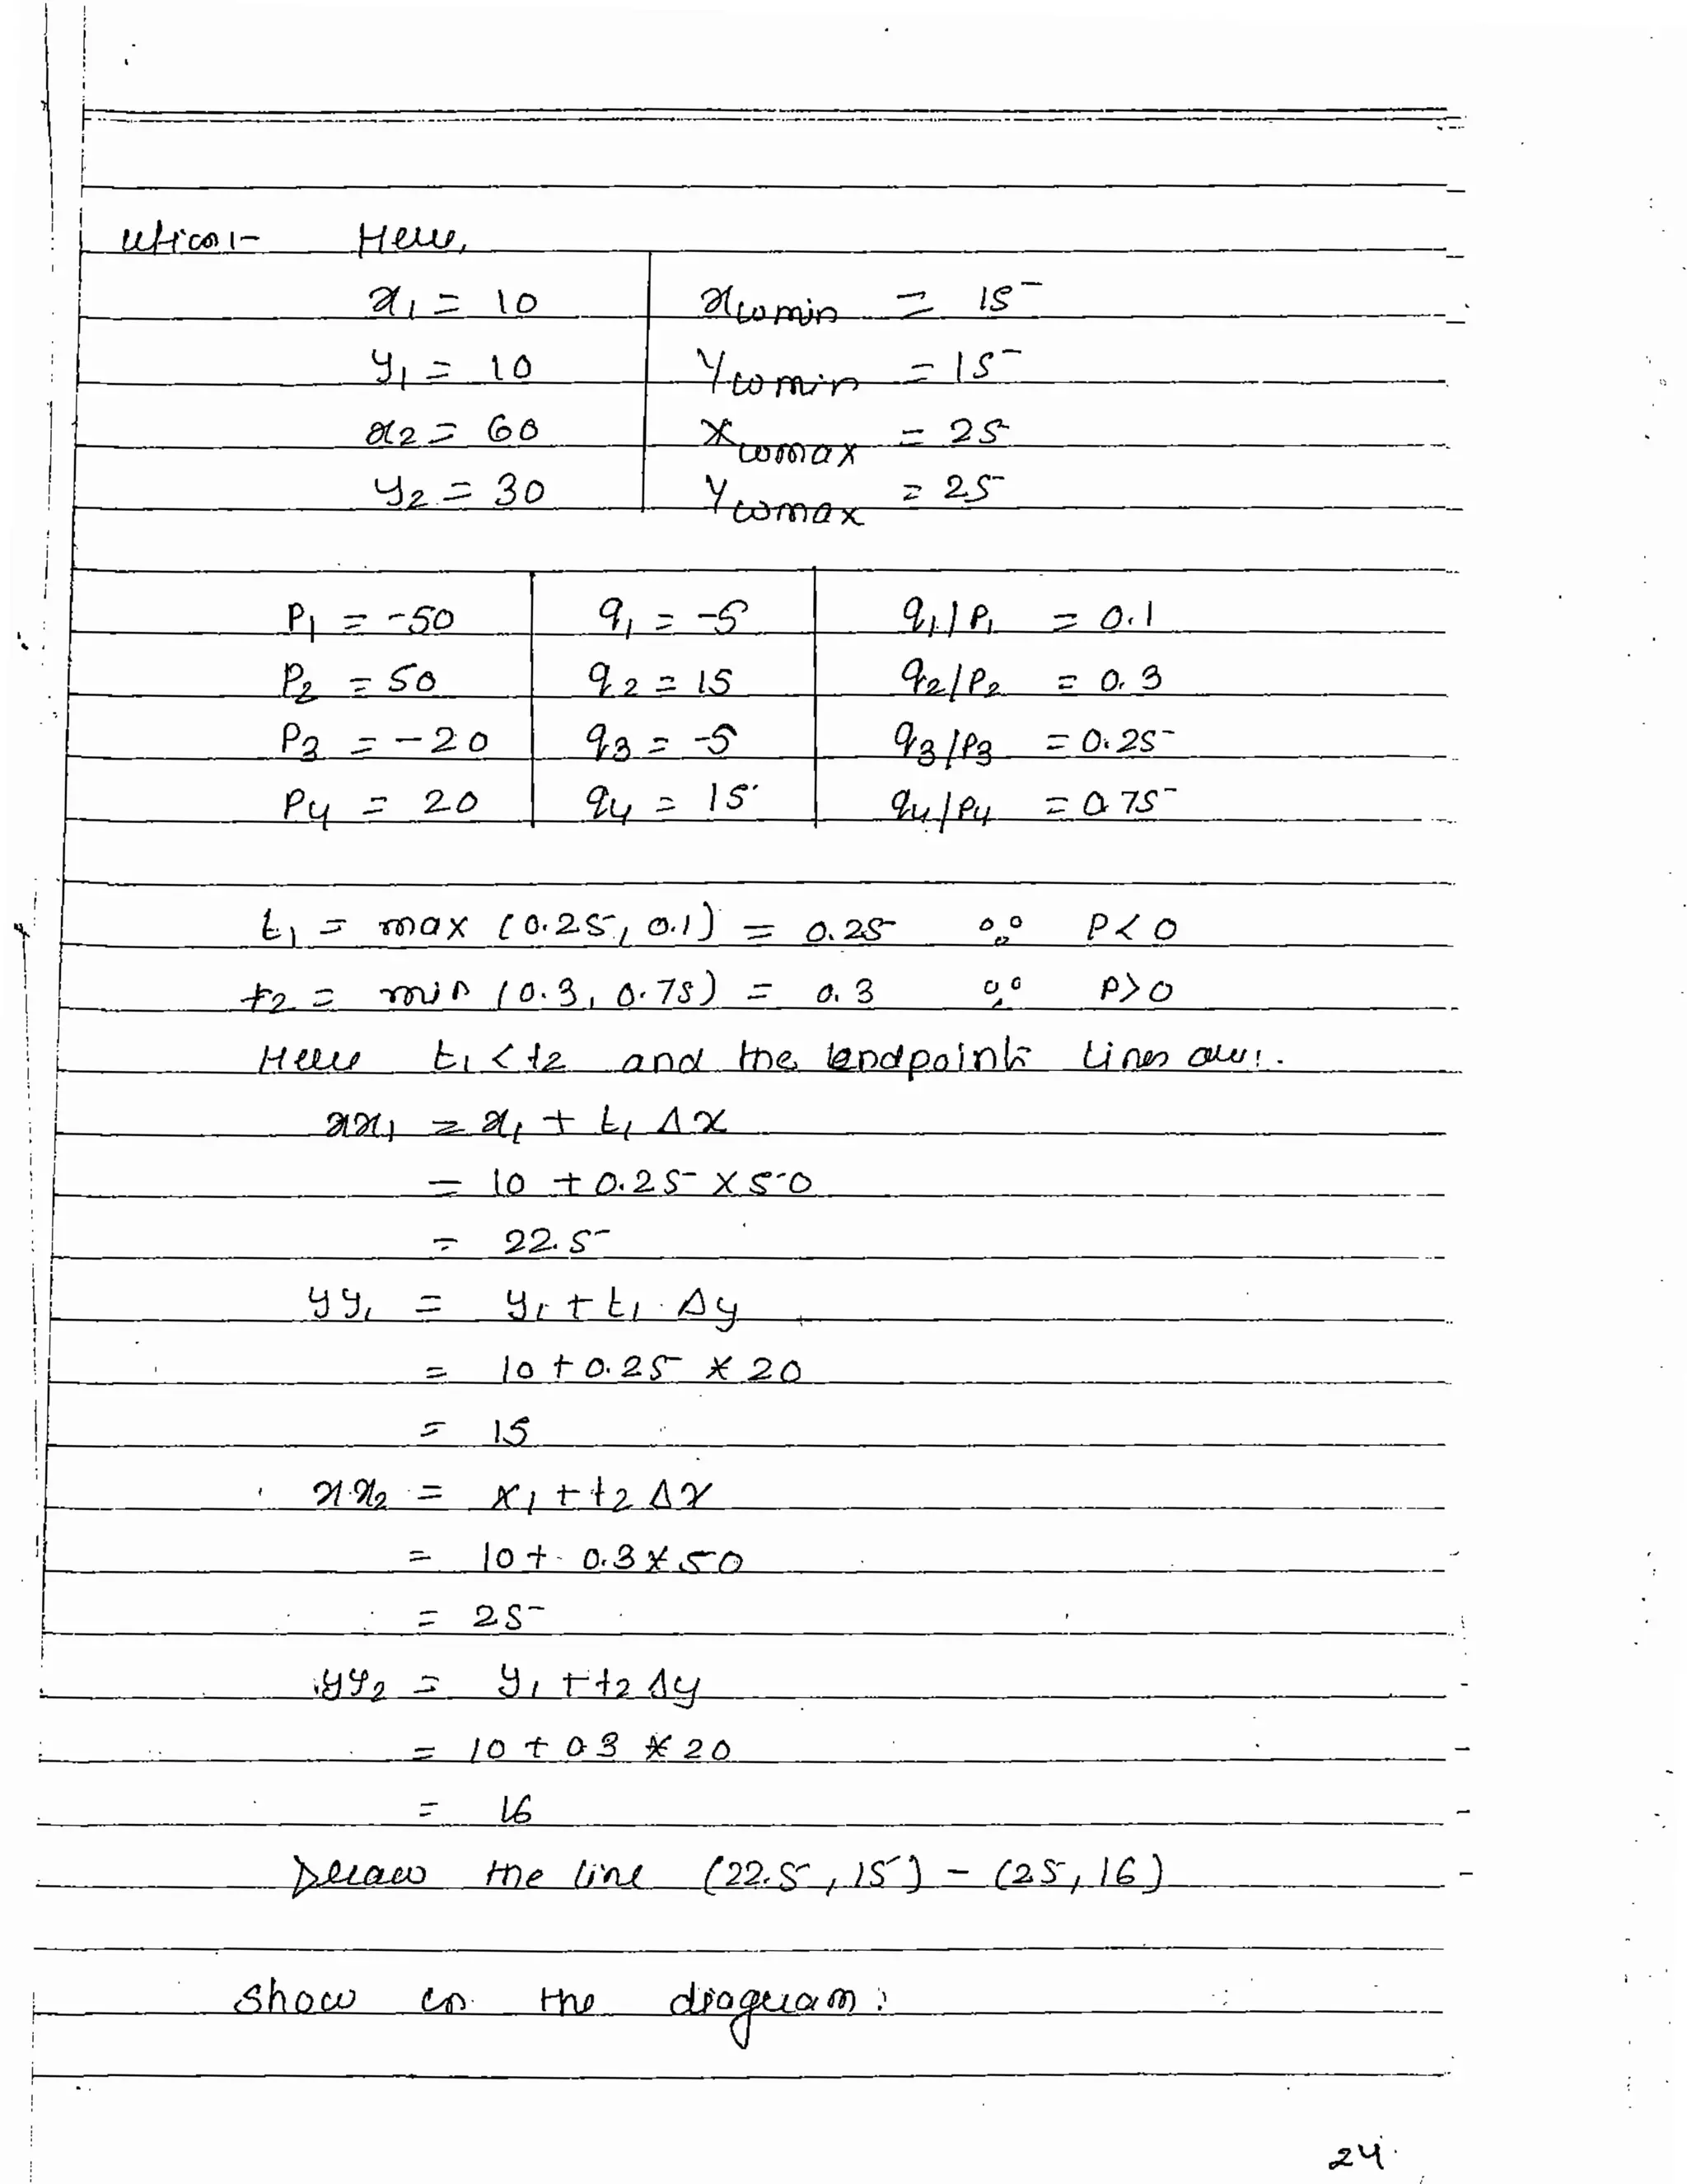 ution:- Here,
x1 = 10 xwmin = 15
y1 = 10 Ywmin = 15
x2 = 60 Xwmax = 25
y2 = 30 Ywmax = 25
P1 = -50 q1 = -5 q1/P1 = 0.1
P2 = 50 q2 = 15 q2/P2 = 0.3
P3 = -20 q3 = -5 q3/P3 = 0.25
P4 = 20 q4 = 15 q4/P4 = 0.75
t1 = max (0.25, 0.1) = 0.25 ∵ P<0
t2 = min (0.3, 0.75) = 0.3 ∵ P>0
Here t1 < t2 and the endpoints lines are:.
xx1 = x1 + t1 Δx
= 10 + 0.25 × 50
= 22.5
yy1 = y1 + t1 . Δy
= 10 + 0.25 * 20
= 15
xx2 = x1 + t2 Δx
= 10 + 0.3 * 50
= 25
yy2 = y1 + t2 Δy
= 10 + 0.3 * 20
= 16
Draw the line (22.5, 15) - (25, 16)
show in the diagram:
24